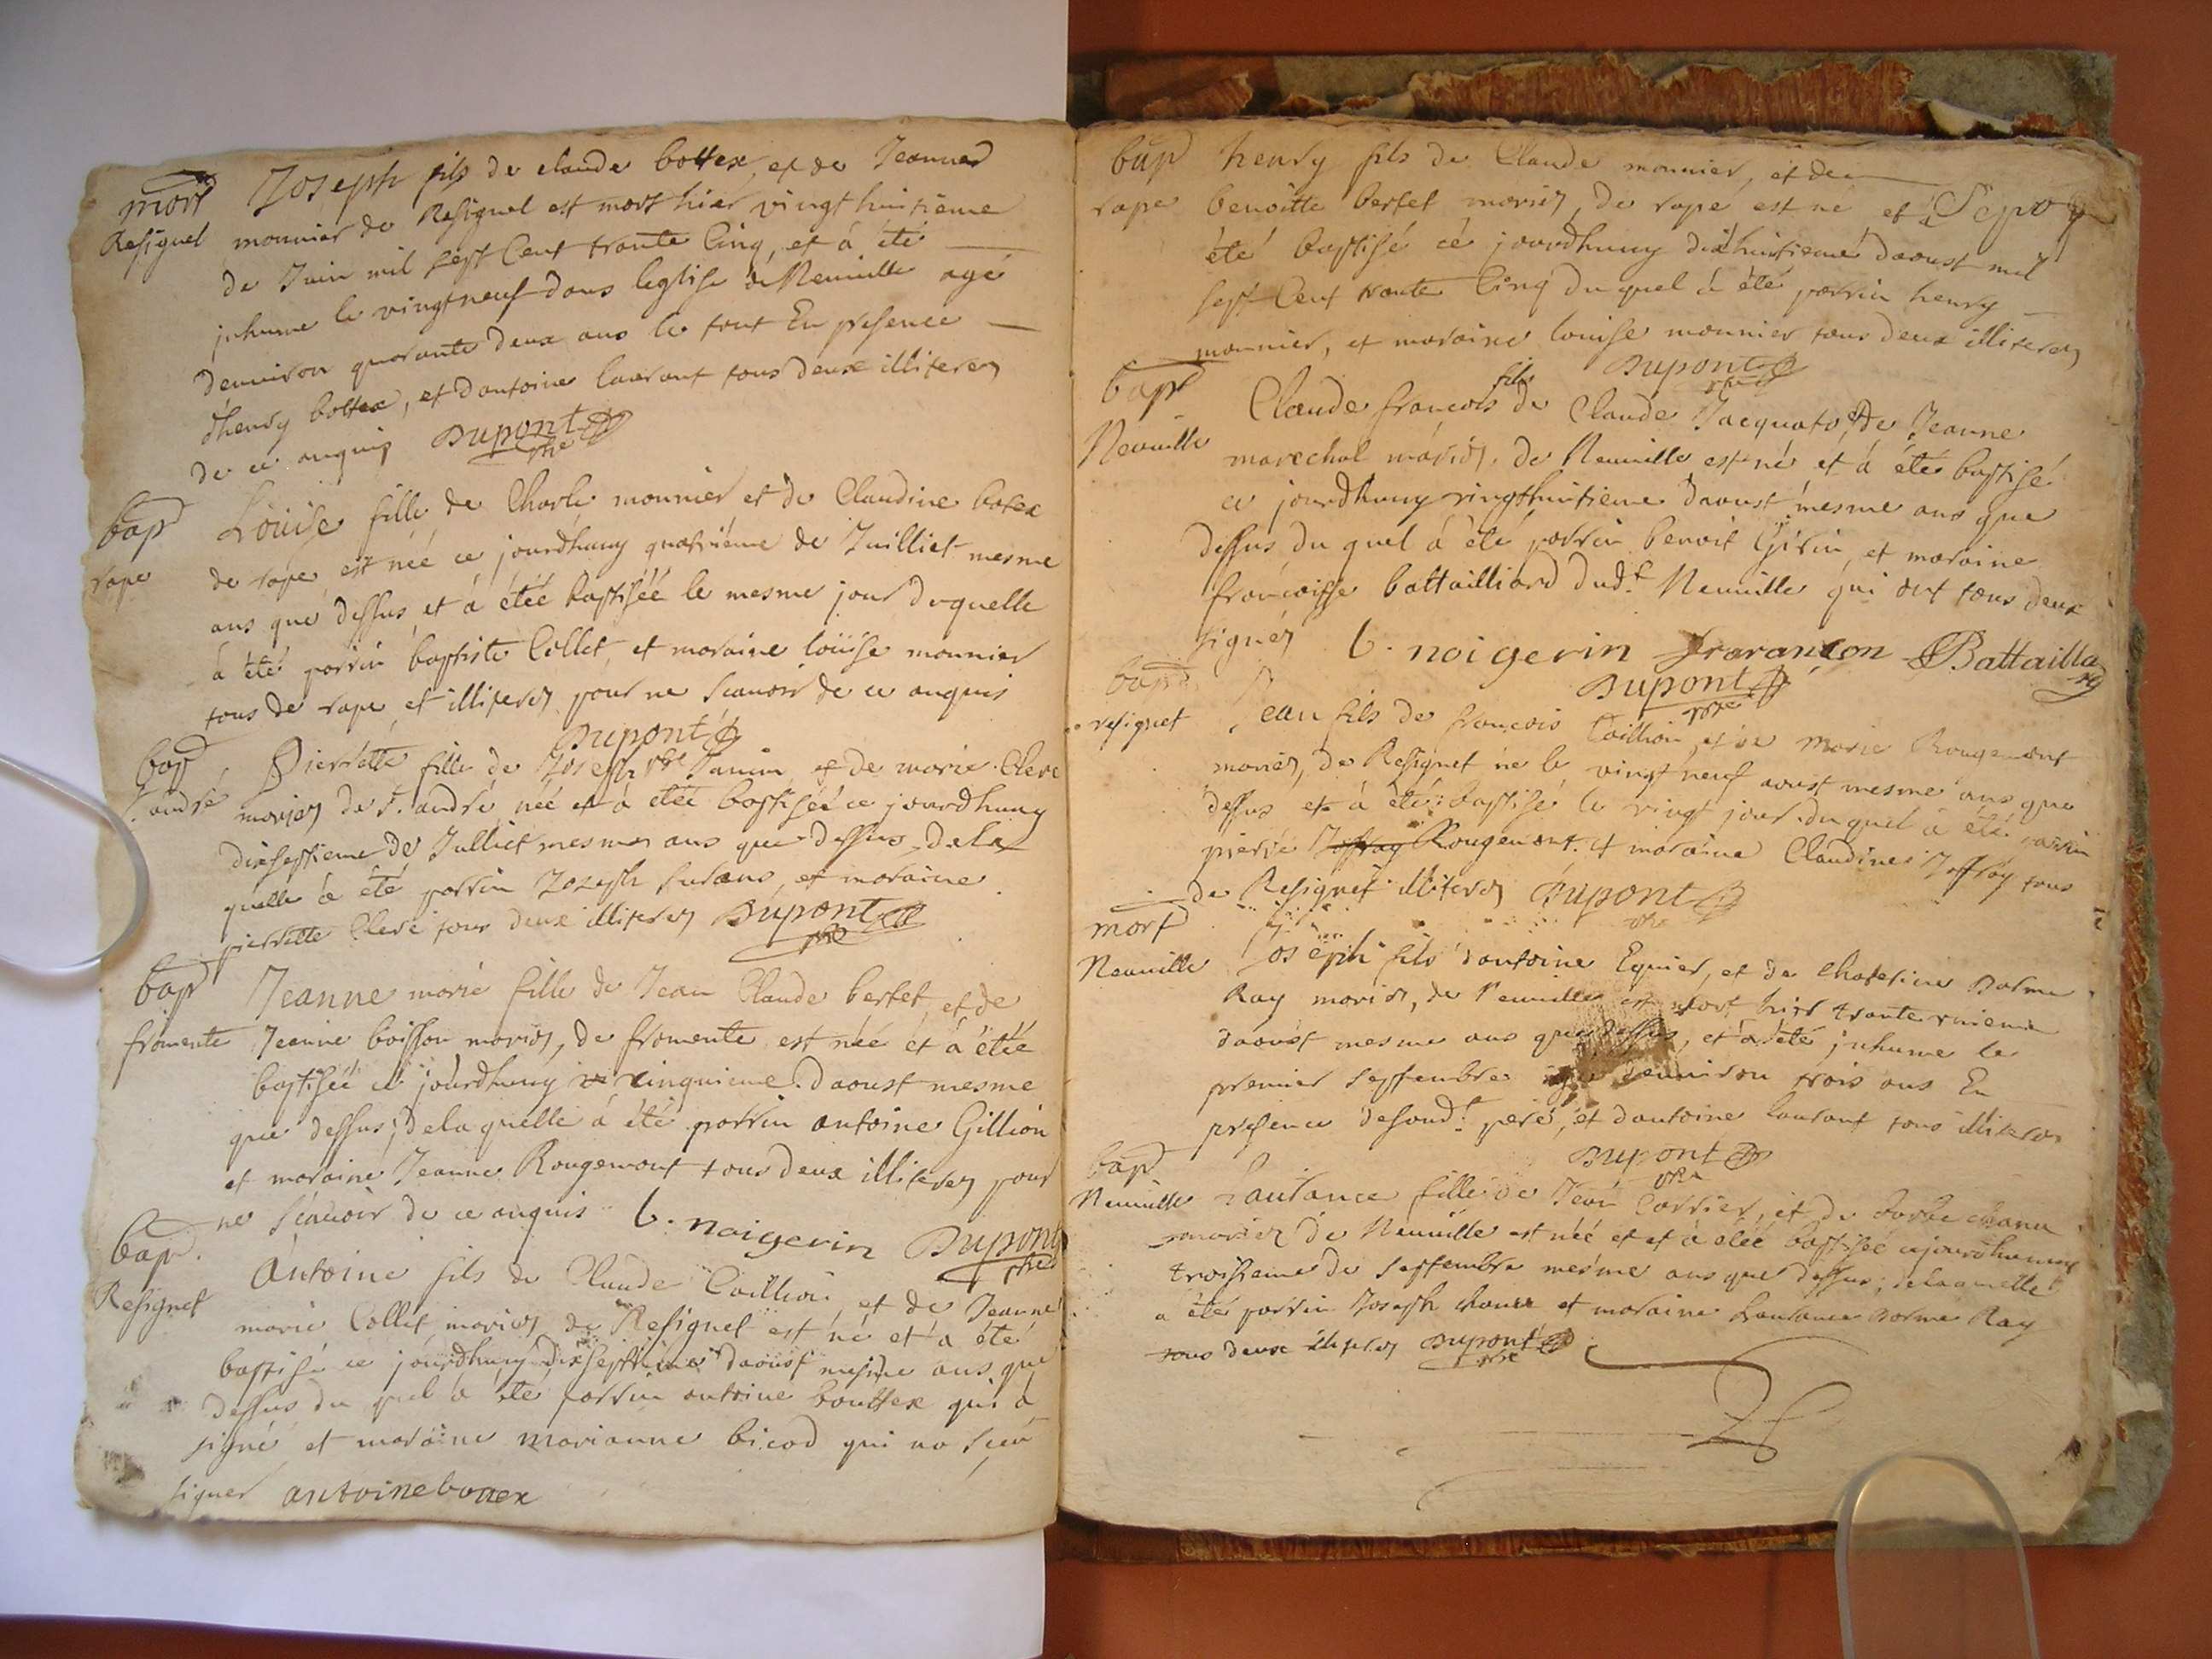 mort Joseph fils de claude bottex, et de Jeanne
Resignel monnier de Resignel est mort hier vingt huitieme
de Juin mil sept Cent trante Cinq, et à été
inhume le vingtneuf dans leglise de Neuville agé
denuiron quarante deux ans le tout En presence
dhenry bottex, et dantoine laurant tous deux illiteres
de ce anquis Dupont
ptre
bap Loüise fille de Charle monnier et de Claudine botex
rape de rape est née ce jourdhuy quatriéme de Juilliet mesme
ans que dessus, et à étéé baptiséé le mesme jour duquelle
à été parrin baptiste Collet, et maraine loüise monnier
tous de rape et illiteres pour ne scauoir de ce anquis
Dupont
ptre
bap Pierrette fille de Joseph Janin et de marie Clere
S. andré maries de S. andré née et à étéé baptiséé ce jourdhuy
dixseptieme de Julliet mesmes ans que dessus, de la
quelle à été parrin Joseph et maraine
pierrette Clere tous deux illiteres Dupont
ptre
bap Jeanne marie fille de Jean Claude bertet, et de
fromente Jeanne boisson maries, de fromente est née et à étéé
baptiséé ce jourdhuy cinquieme daoust mesme
que dessus; delaquelle à été parrin antoine Gillion
et maraine Jeanne Rougemont tous deux illiteres pour
ne scauoir de ce anquis b. noigerin Dupont
ptre
bap. Antoine fils de Claude Caillion, et de Jeanne
Resignet marie Collet maries de Resignet est né et à été
baptisé ce jourdhuy dixseptieme daoust mesme ans que
dessus du quel à été parrin antoine bouttex qui à
signé et maraine marianne bicod qui na sceu
signer antoine botex
bap henry fils de Claude monnier, et de
rape benoitte bertet maries, de rape est né et à
été baptisé cé jourdhuy dixhuitieme daoust mil
sept Cent trante Cinq du quel à été parrin henry
monnier, et maraine louise monnier tous deux illiteres
Dupont
ptre
bap Claude françois fils de Claude Jacquato, et de Jeanne
Neuuille marechal mariés, de Neuuille est né et à été baptisé
ce jourdhuy vingthuitieme daoust mesme ans que
dessus, du quel à été parrin benoit Girin, et maraine
françoisse battailliard dudt Neuuille qui ont tous deux
signés b. noigerin Battailla
Dupont
ptre
bap. Jean fils de françois Caillion, et de marie Rougemont
resignet maries, de Resignet né le vingt neuf aoust mesme ans que
dessus et à été baptisé le vingt jour duquel à été parrin
pierre Joffray Rougemont et maraine Claudine Joffray tous
de Resignet illiteres Dupont
ptre
mort Joseph fils dantoine Equier, et de Chaterine Dorme
Neuuille Ray maries, de Neuuille est mort hier trante unieme
daoust mesme ans que dessus, et à été inhume le
premier septembre agé denuiron trois ans En
presence desond. peré, et dantoine laurant tous illiteres
Dupont
ptre
bap Laurance fille de Jean Carrier, et de barbe chanu
Neuuille maries de Neuuille est née et et à étéé baptisée cejourdhuy
troisieme de septembre mesme ans que dessus; delaquelle
a été parrin Joseph chanu et maraine laurance Dorme Ray
tous deux illiteres Dupont
ptre